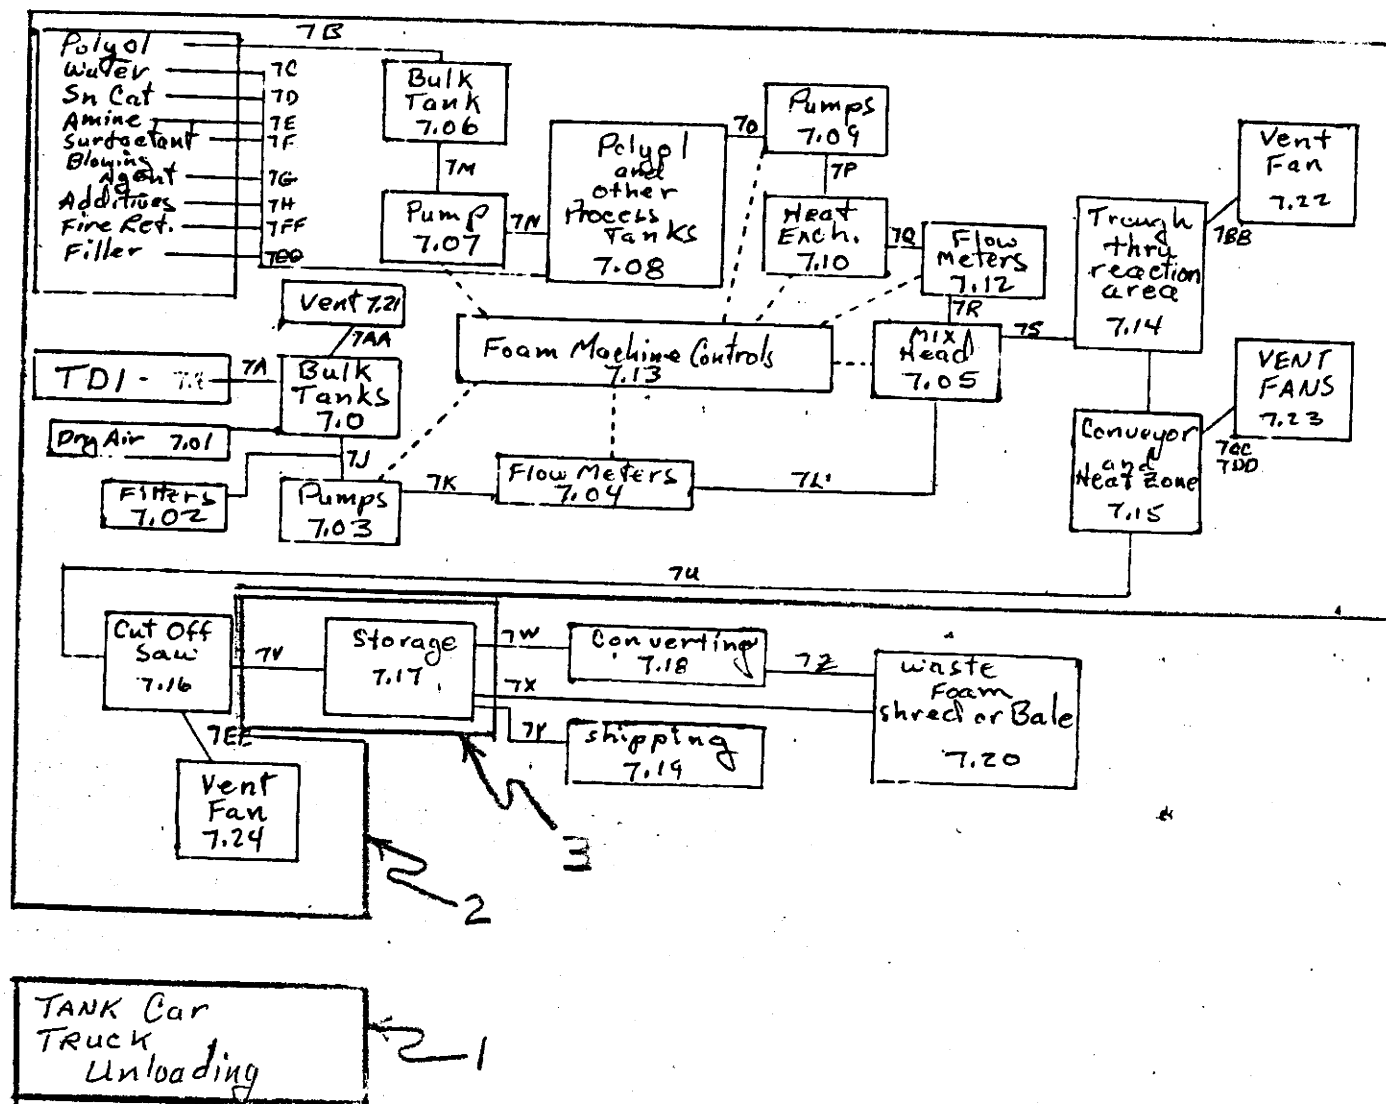 Polyol
Water
Sn Cat
Amine
Surfactant
Blowing
Agent
Additives
Fire Ret.
Filler
7B
7C
7D
7E
7F
7G
7H
7FF
Bulk
Tank
7.06
7M
Pump
7.07
7N
Polyol
and
other
Process
Tanks
7.08
7O
Pumps
7.09
7P
Heat
Exch.
7.10
7Q
Flow
Meters
7.12
7R
Mix
Head
7.05
7S
Trough
thru
reaction
area
7.14
7BB
Vent
Fan
7.22
VENT
FANS
7.23
7CC
7DD
Conveyor
and
Heat Zone
7.15
Vent 7.21
7AA
TDI -
7A
Bulk
Tanks
7.0
Dry Air 7.01
7J
Filters
7.02
Pumps
7.03
7K
Flow Meters
7.04
7L
Foam Machine Controls
7.13
7U
Cut Off
Saw
7.16
7V
Storage
7.17
7W
Converting
7.18
7Z
7X
7Y
Shipping
7.19
Waste
Foam
Shred or Bale
7.20
7EE
Vent
Fan
7.24
3
2
TANK Car
TRUCK
Unloading
1